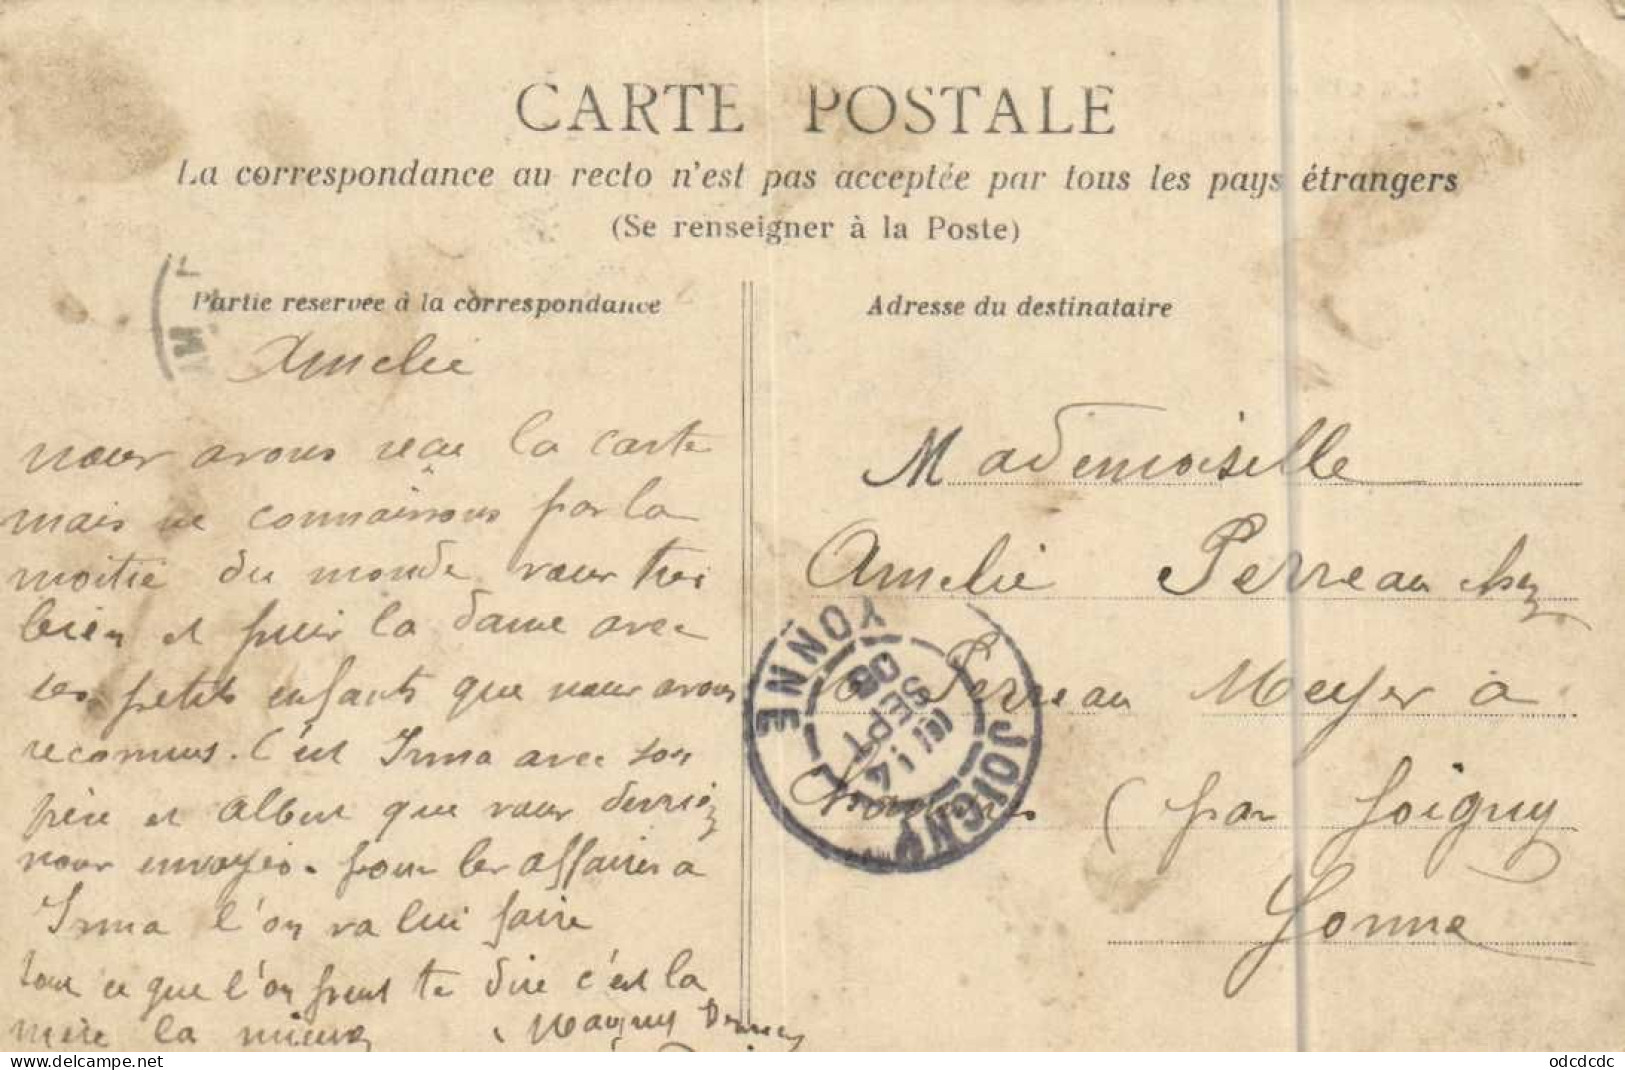 CARTE POSTALE
La correspondance au recto n'est pas acceptée par tous les pays étrangers
(Se renseigner à la Poste)
Partie reservée à la correspondance
Adresse du destinataire
Amelie
nous avons reçu la carte
mais ne connaissons par la
moitié du monde vous tres
bien et puis la dame avec
ses petits enfants que nous avons
reconnus. C'est Irma avec son
père et Albert que vous devriez
nous envoyés. pour les affaires a
Irma l'on va lui faire
tout ce que l'on peut te dire c'est la
mère la mieux
Mademoiselle
Amelie Perreau chez
Perreau Meyer à
(par Joigny
Yonne
JOIGNY
YONNE
14
SEPT
05
delcampe.net
odcdcdc